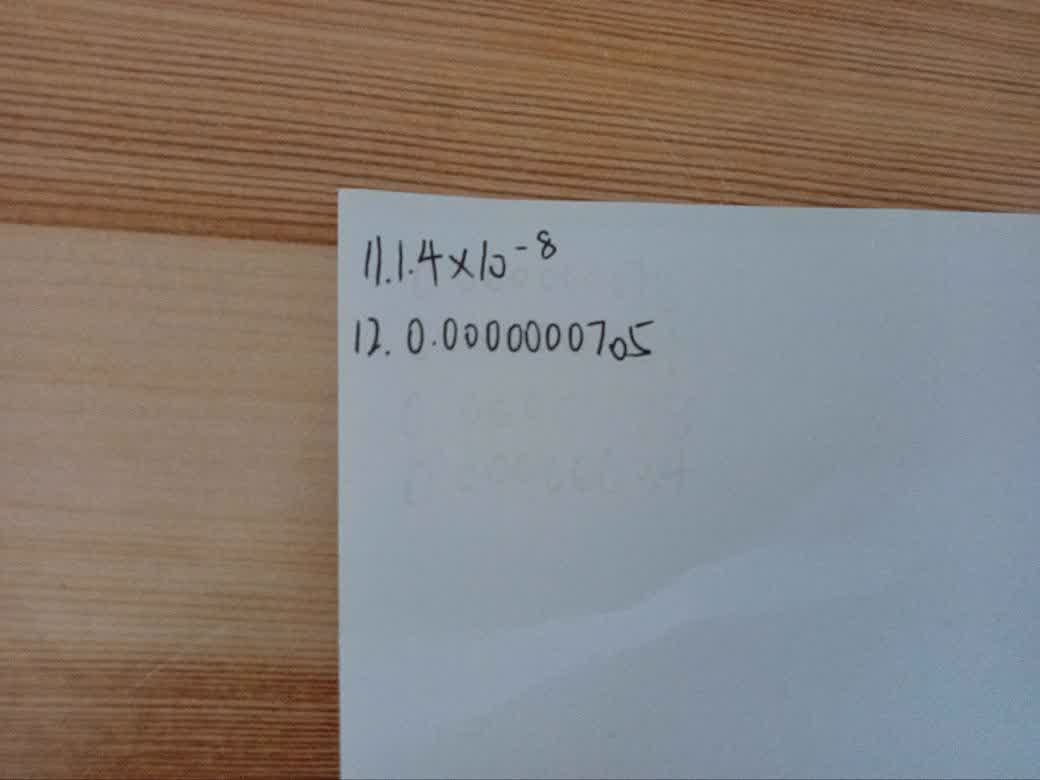 11. 1.4×10⁻⁸
12. 0.0000000705